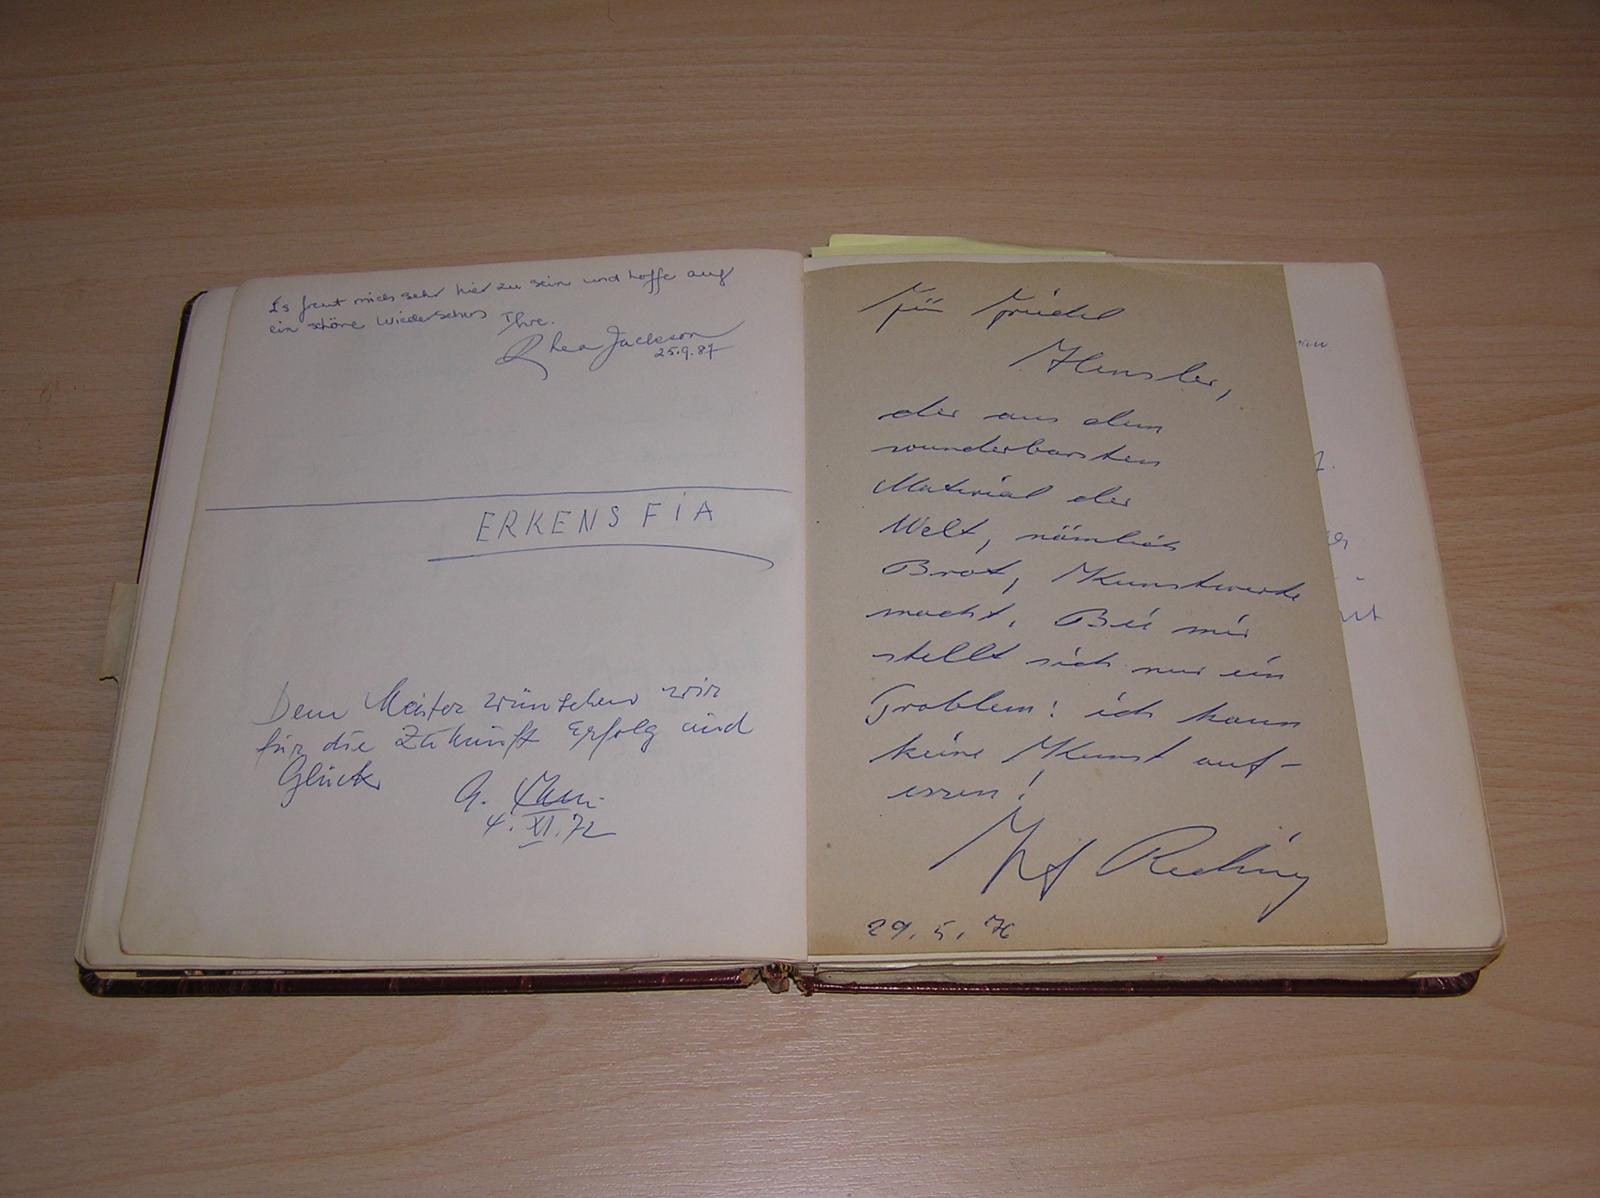 Es freut mich sehr hier zu sein und hoffe auf
ein schöne Wiedersehen Ihre.
Rhea Jackson
25.9.87
ERKENS FIA
Dem Meister wünschen wir
für die Zukunft Erfolg und
Glück
G.
4. XI. 72
Für Friedel
Hensler,
der aus dem
wunderbarsten
Material der
Welt, nämlich
Brot, Kunstwerke
macht. Bei mir
stellt sich nur ein
Problem: ich kann
keine Kunst auf-
essen!
Josef Reding
29. 5. 76